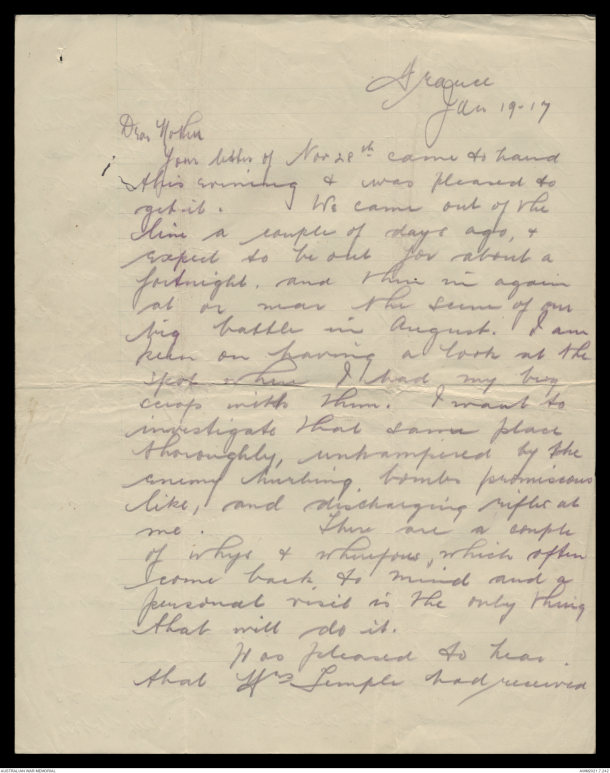 France
Jan 19-17
Dear Mother
Your letter of Nov 28th came to hand
this evening & was pleased to
get it. We came out of the
line a couple of days ago, &
expect to be out for about a
fortnight, and then in again
at or near the scene of our
big battle in August. I am
keen on having a look at the
spot where I had my big
scrap with them. I want to
investigate that same place
thoroughly, unhampered by the
enemy hurling bombs promiscous
like, and discharging rifles at
me. There are a couple
of whys & wherefores, which often
come back to mind and a
personal visit is the only thing
that will do it.
Was pleased to hear
that Mrs Semple had received
AUSTRALIAN WAR MEMORIAL